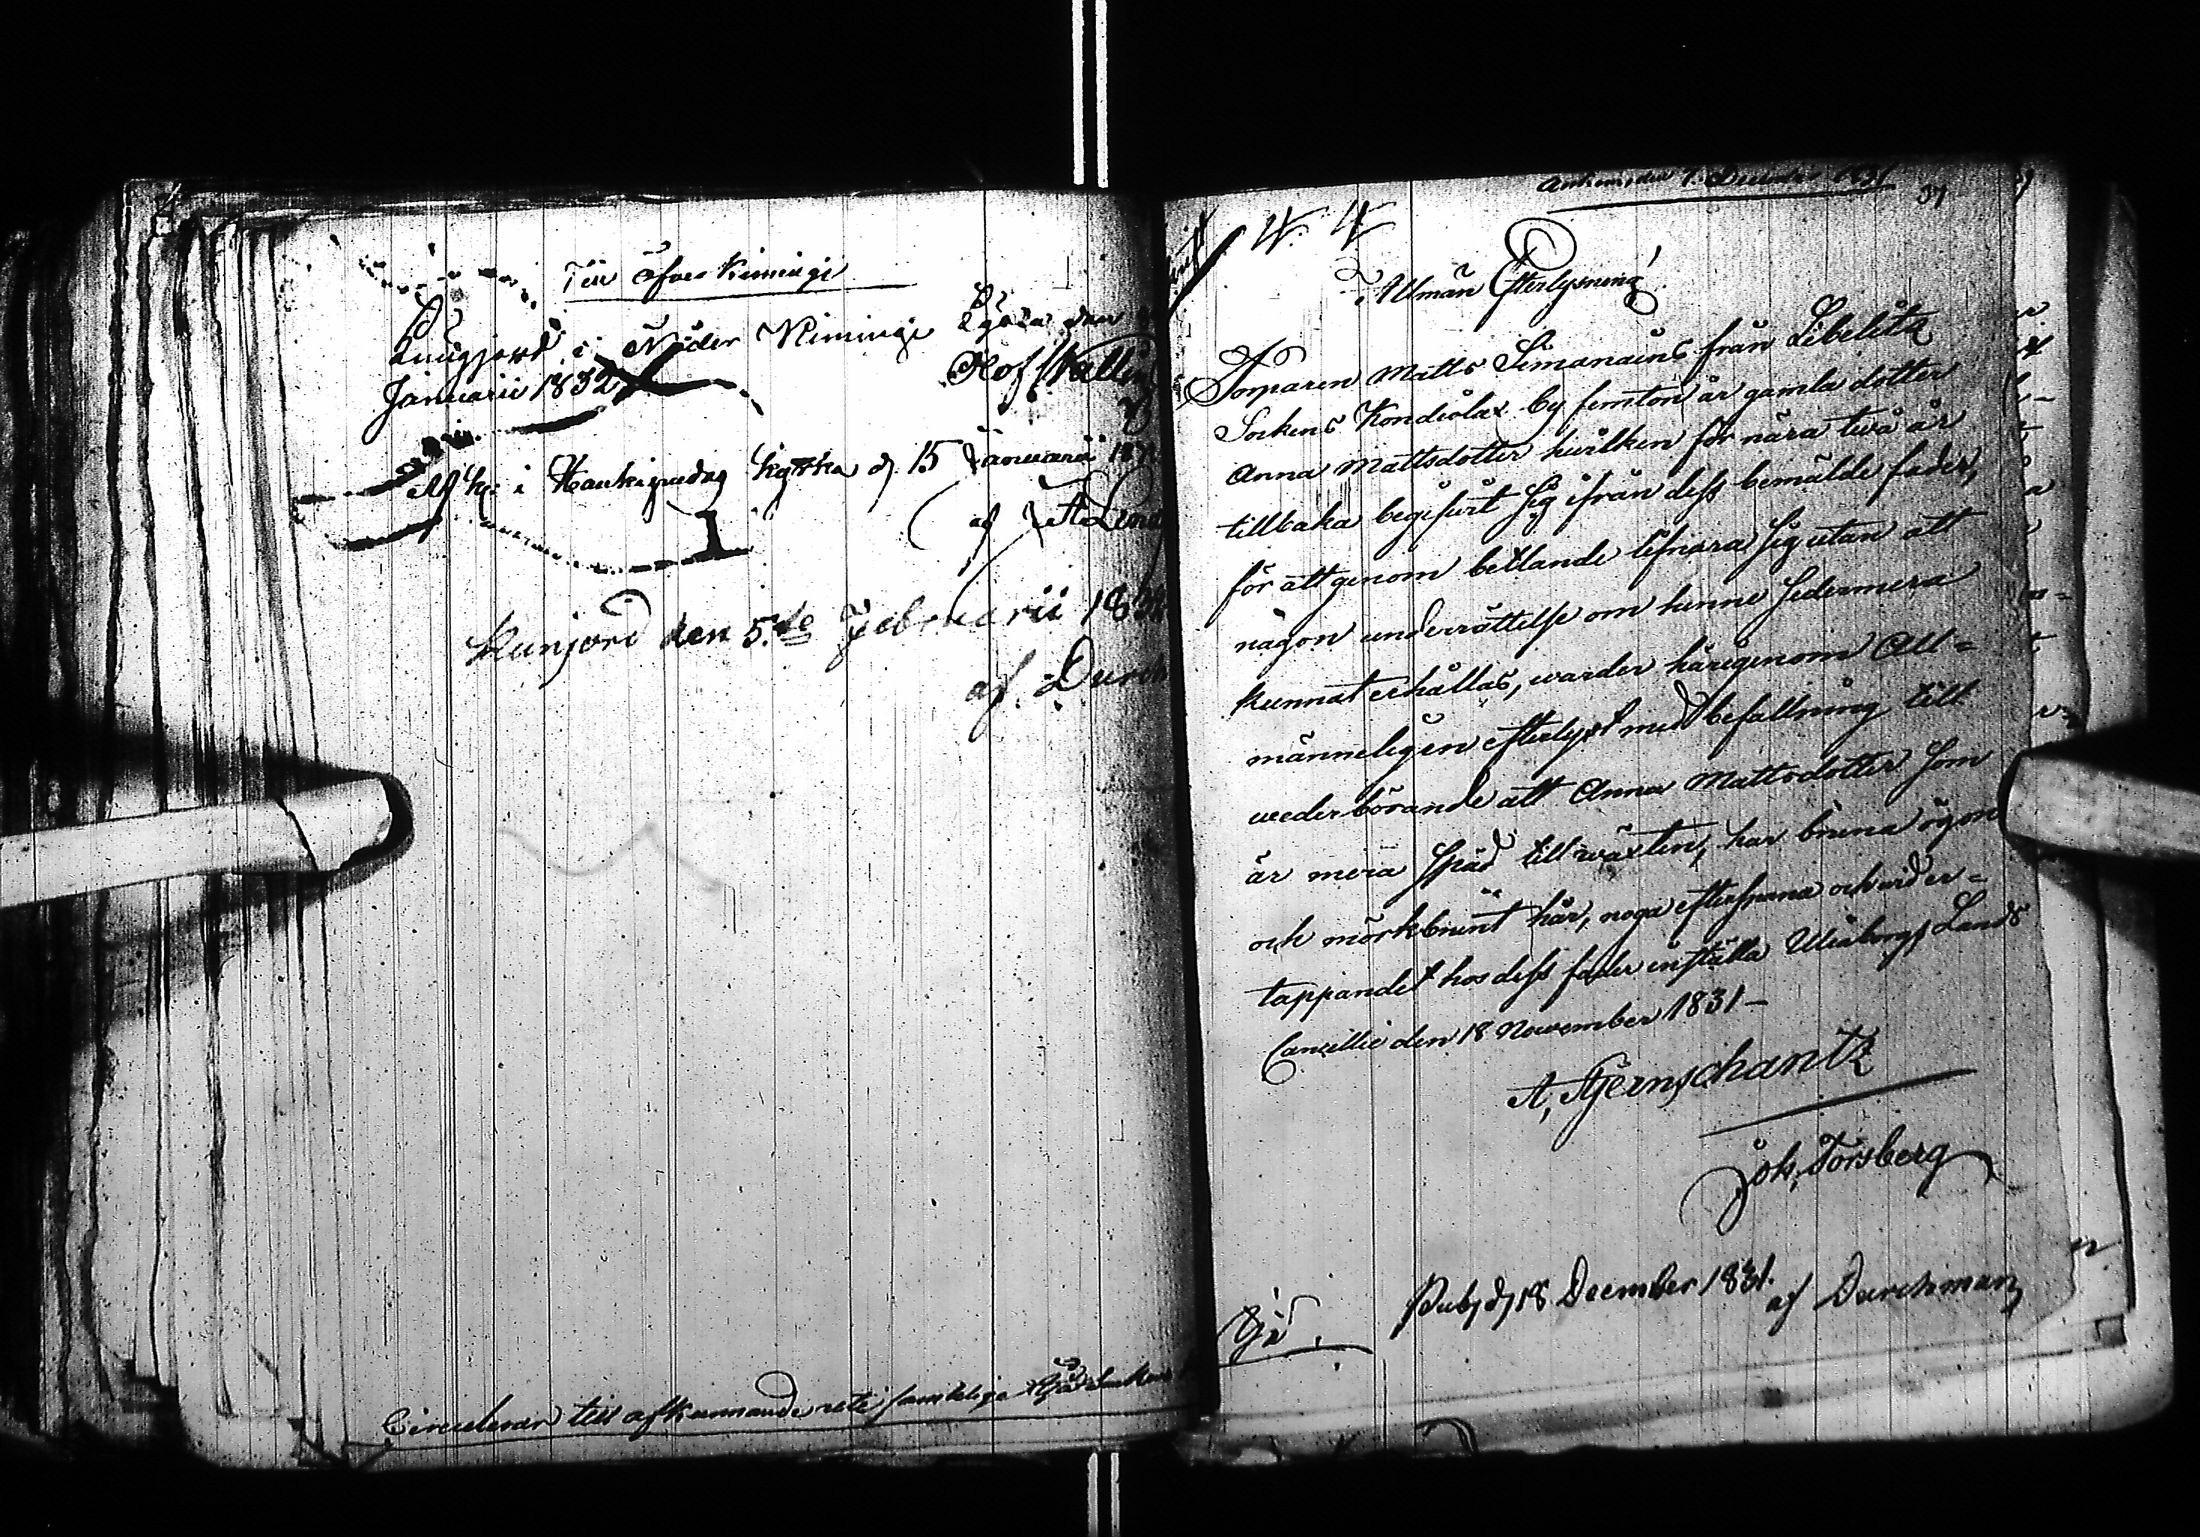 Till Öfver Kiminge
Kungjord i Neder Kiminge Kyrka den
Januarii 1832
Olof Wallin
Afk: i Haukipudas kyrka d. 15 Januarii 1832
af
Kunjord den 5:te Februarii 1832
af Durch
Circulerar till afkunnande uti samtelige
Ankom den 7 December 1831
37
Allmän Efterlysning!
Torparen Matts Simanains från Libelitz
Sockens Kondiolax by femton år gamla dotter
Anna Mattsdotter hvilken för nära twå år
tillbaka begifwit sig ifrån dess bemälde fader,
för att genom bettlande lifnära sig utan att
någon underrättelse om henne sedermera
kunnat erhållas, warder härigenom All-
männeligen efterlyst med befallning till
wederbörande att Anna Mattsdotter som
är mera späd till wäxten, har bruna ögon
och mörkbrunt hår, noga efterspana och i wider-
tappandet hos dess fader inställa Uleåborgs Lands
Cancellie den 18 November 1831 –
A, Stjernschantz
Joh, Forsberg
Pub, d, 18 December 1831.
af Durchman